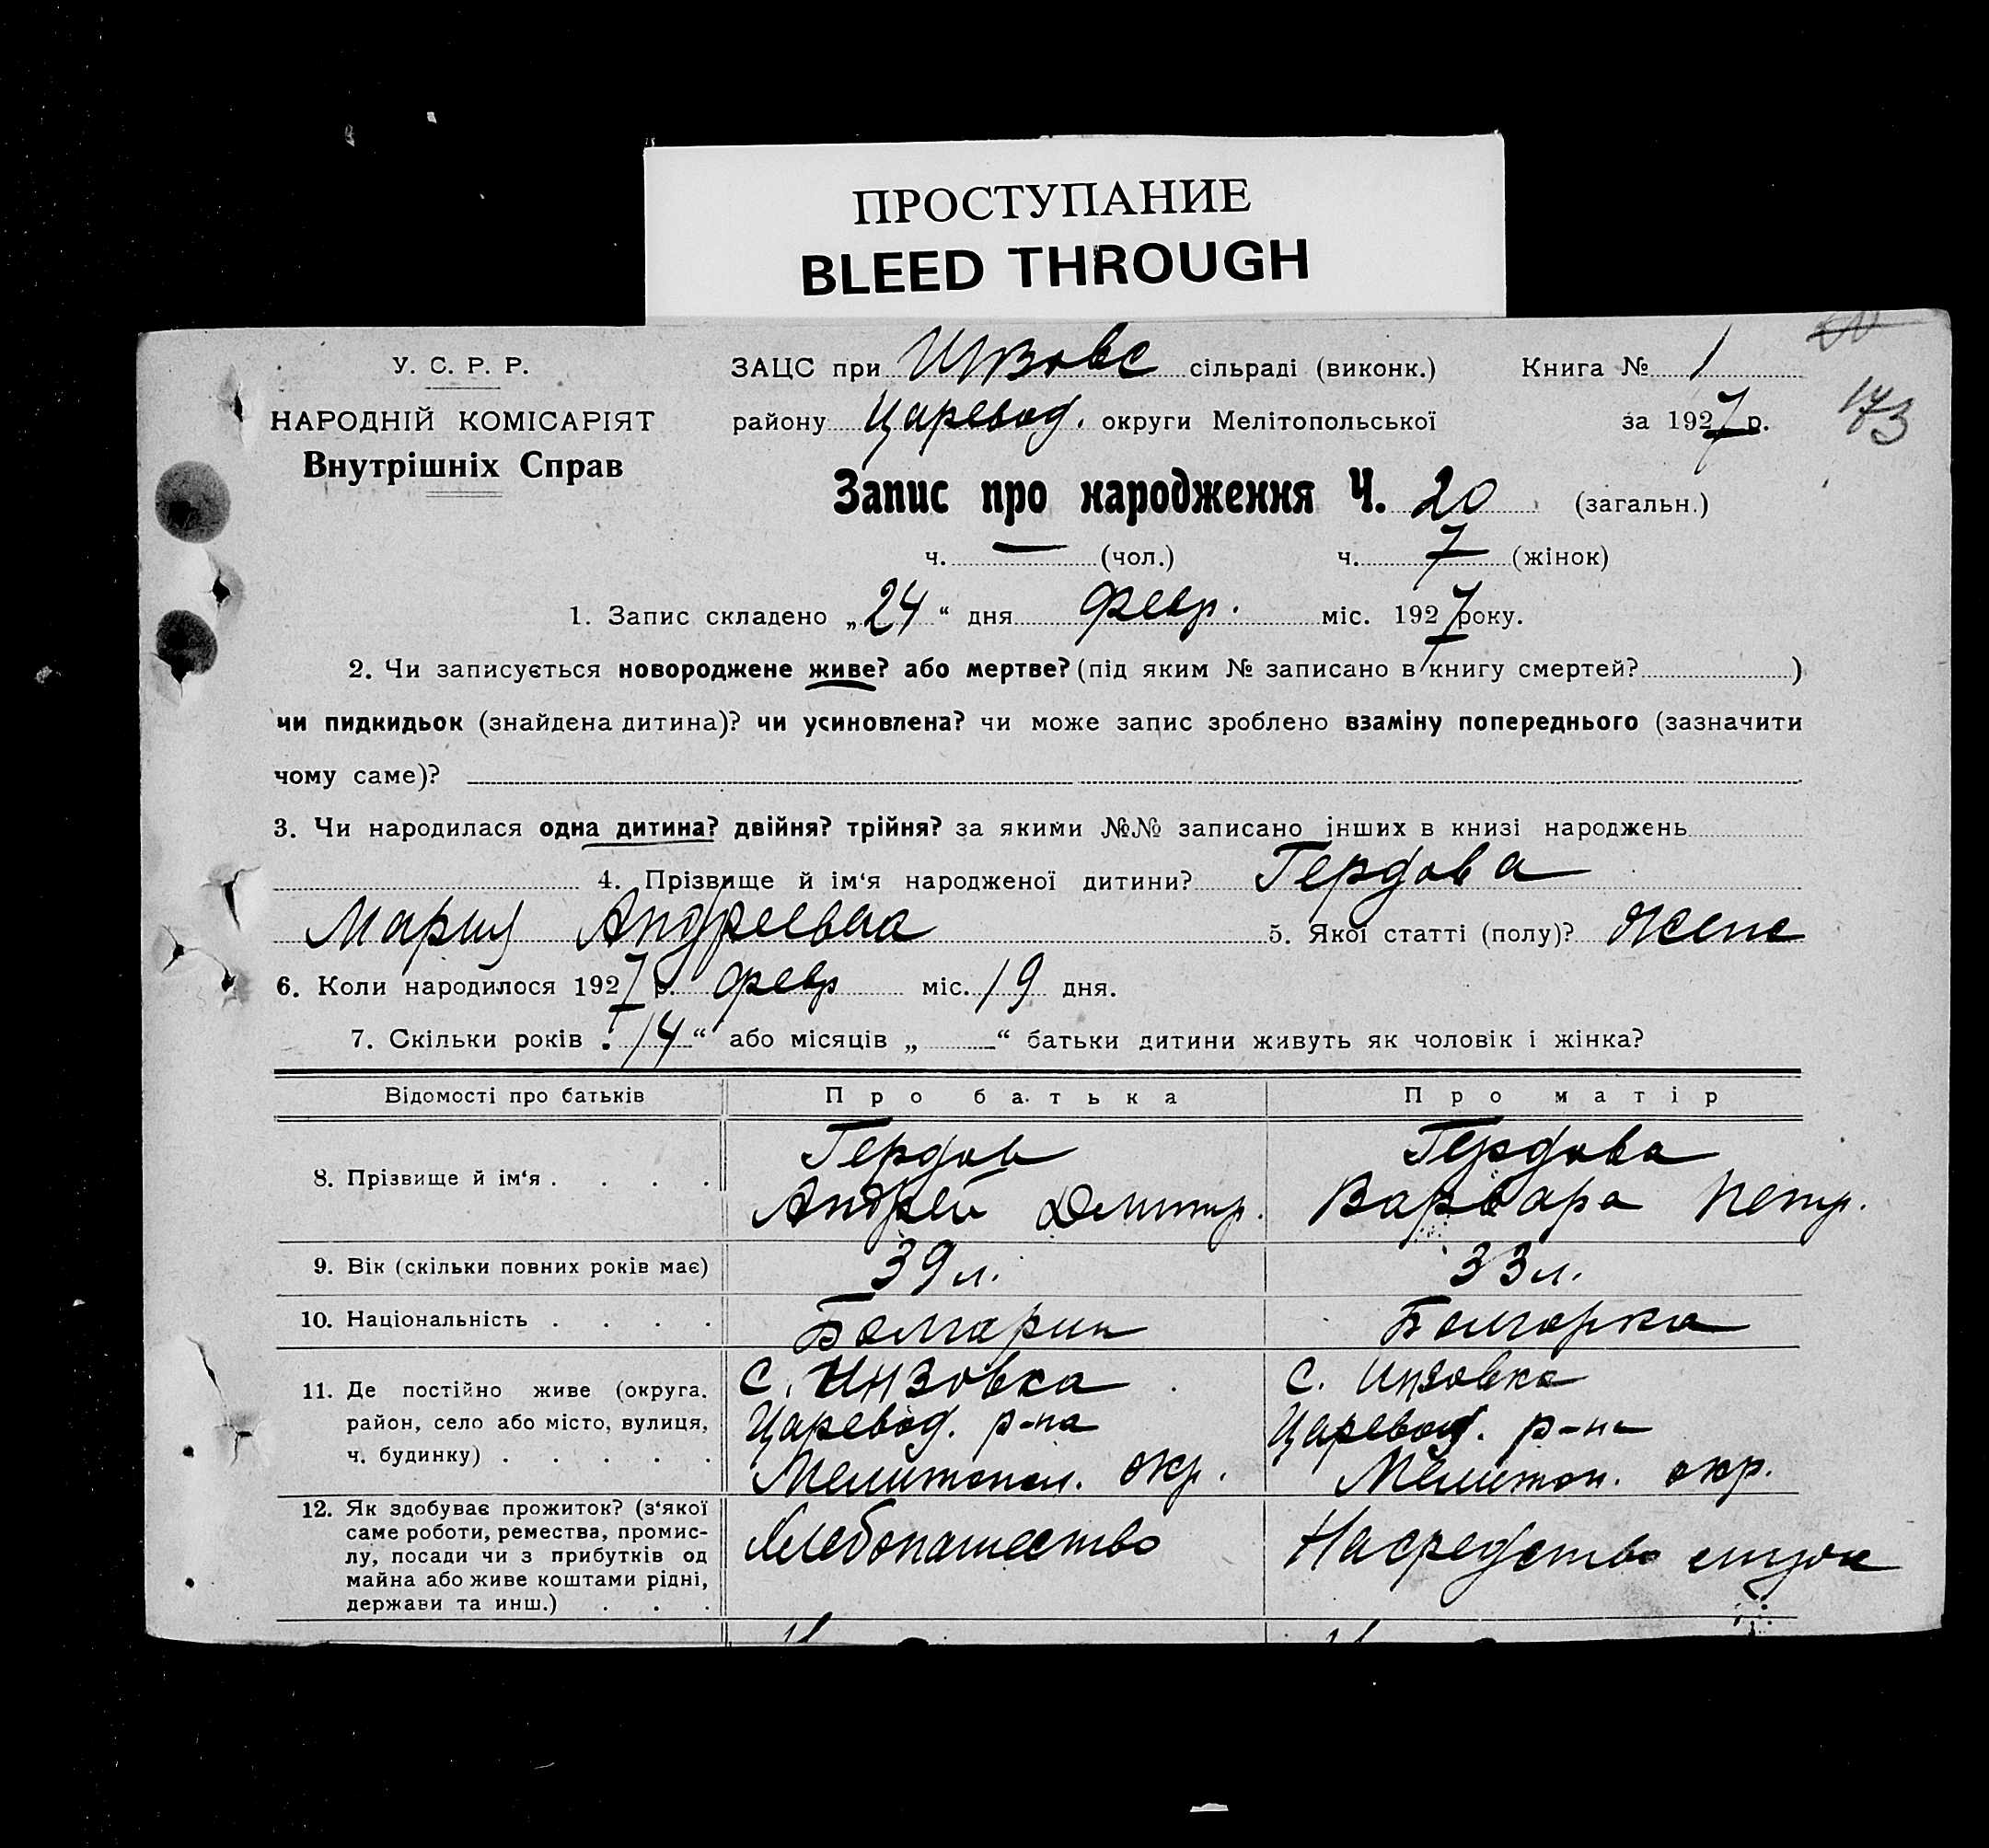 ПРОСТУПАНИЕ
BLEED THROUGH
У. С. Р. Р.
НАРОДНІЙ КОМІСАРІЯТ
Внутрішніх Справ
ЗАЦС при Инзовс сільраді (виконк.) Книга № 1
району Царевод. округи Мелітопольської за 1927 р.
173
Запис про народження Ч. 20 (загальн.)
ч. — (чол.) ч. 7 (жінок)
1. Запис складено „24“ дня февр. міс. 1927 року.
2. Чи записується новороджене живе? або мертве? (під яким № записано в книгу смертей? )
чи пидкидьок (знайдена дитина)? чи усиновлена? чи може запис зроблено взаміну попереднього (зазначити
чому саме)?
3. Чи народилася одна дитина? двійня? трійня? за якими №№ записано інших в книзі народжень
4. Прізвище й ім‘я народженої дитини? Гердова
Мария Андреевна 5. Якої статті (полу)? Женс
6. Коли народилося 1927 р. февр міс. 19 дня.
7. Скільки років „14“ або місяців „ “ батьки дитини живуть як чоловік і жінка?
Відомості про батьків Про батька Про матір
8. Прізвище й ім‘я . . . . Гердов Андрей Дмитр. Гердова Варвара Петр.
9. Вік (скільки повних років має) 39 л. 33 л.
10. Національність . . . . Болгарин Болгарка
11. Де постійно живе (округа, район, село або місто, вулиця, ч. будинку) . . . . . С. Инзовка Царевод. р-на Мелитопол. окр. С. Инзовка Царевод. р-на Мелитоп. окр.
12. Як здобуває прожиток? (з‘якої саме роботи, ремества, промислу, посади чи з прибутків од майна або живе коштами рідні, держави та инш.) . . . Хлебопашество На средства мужа